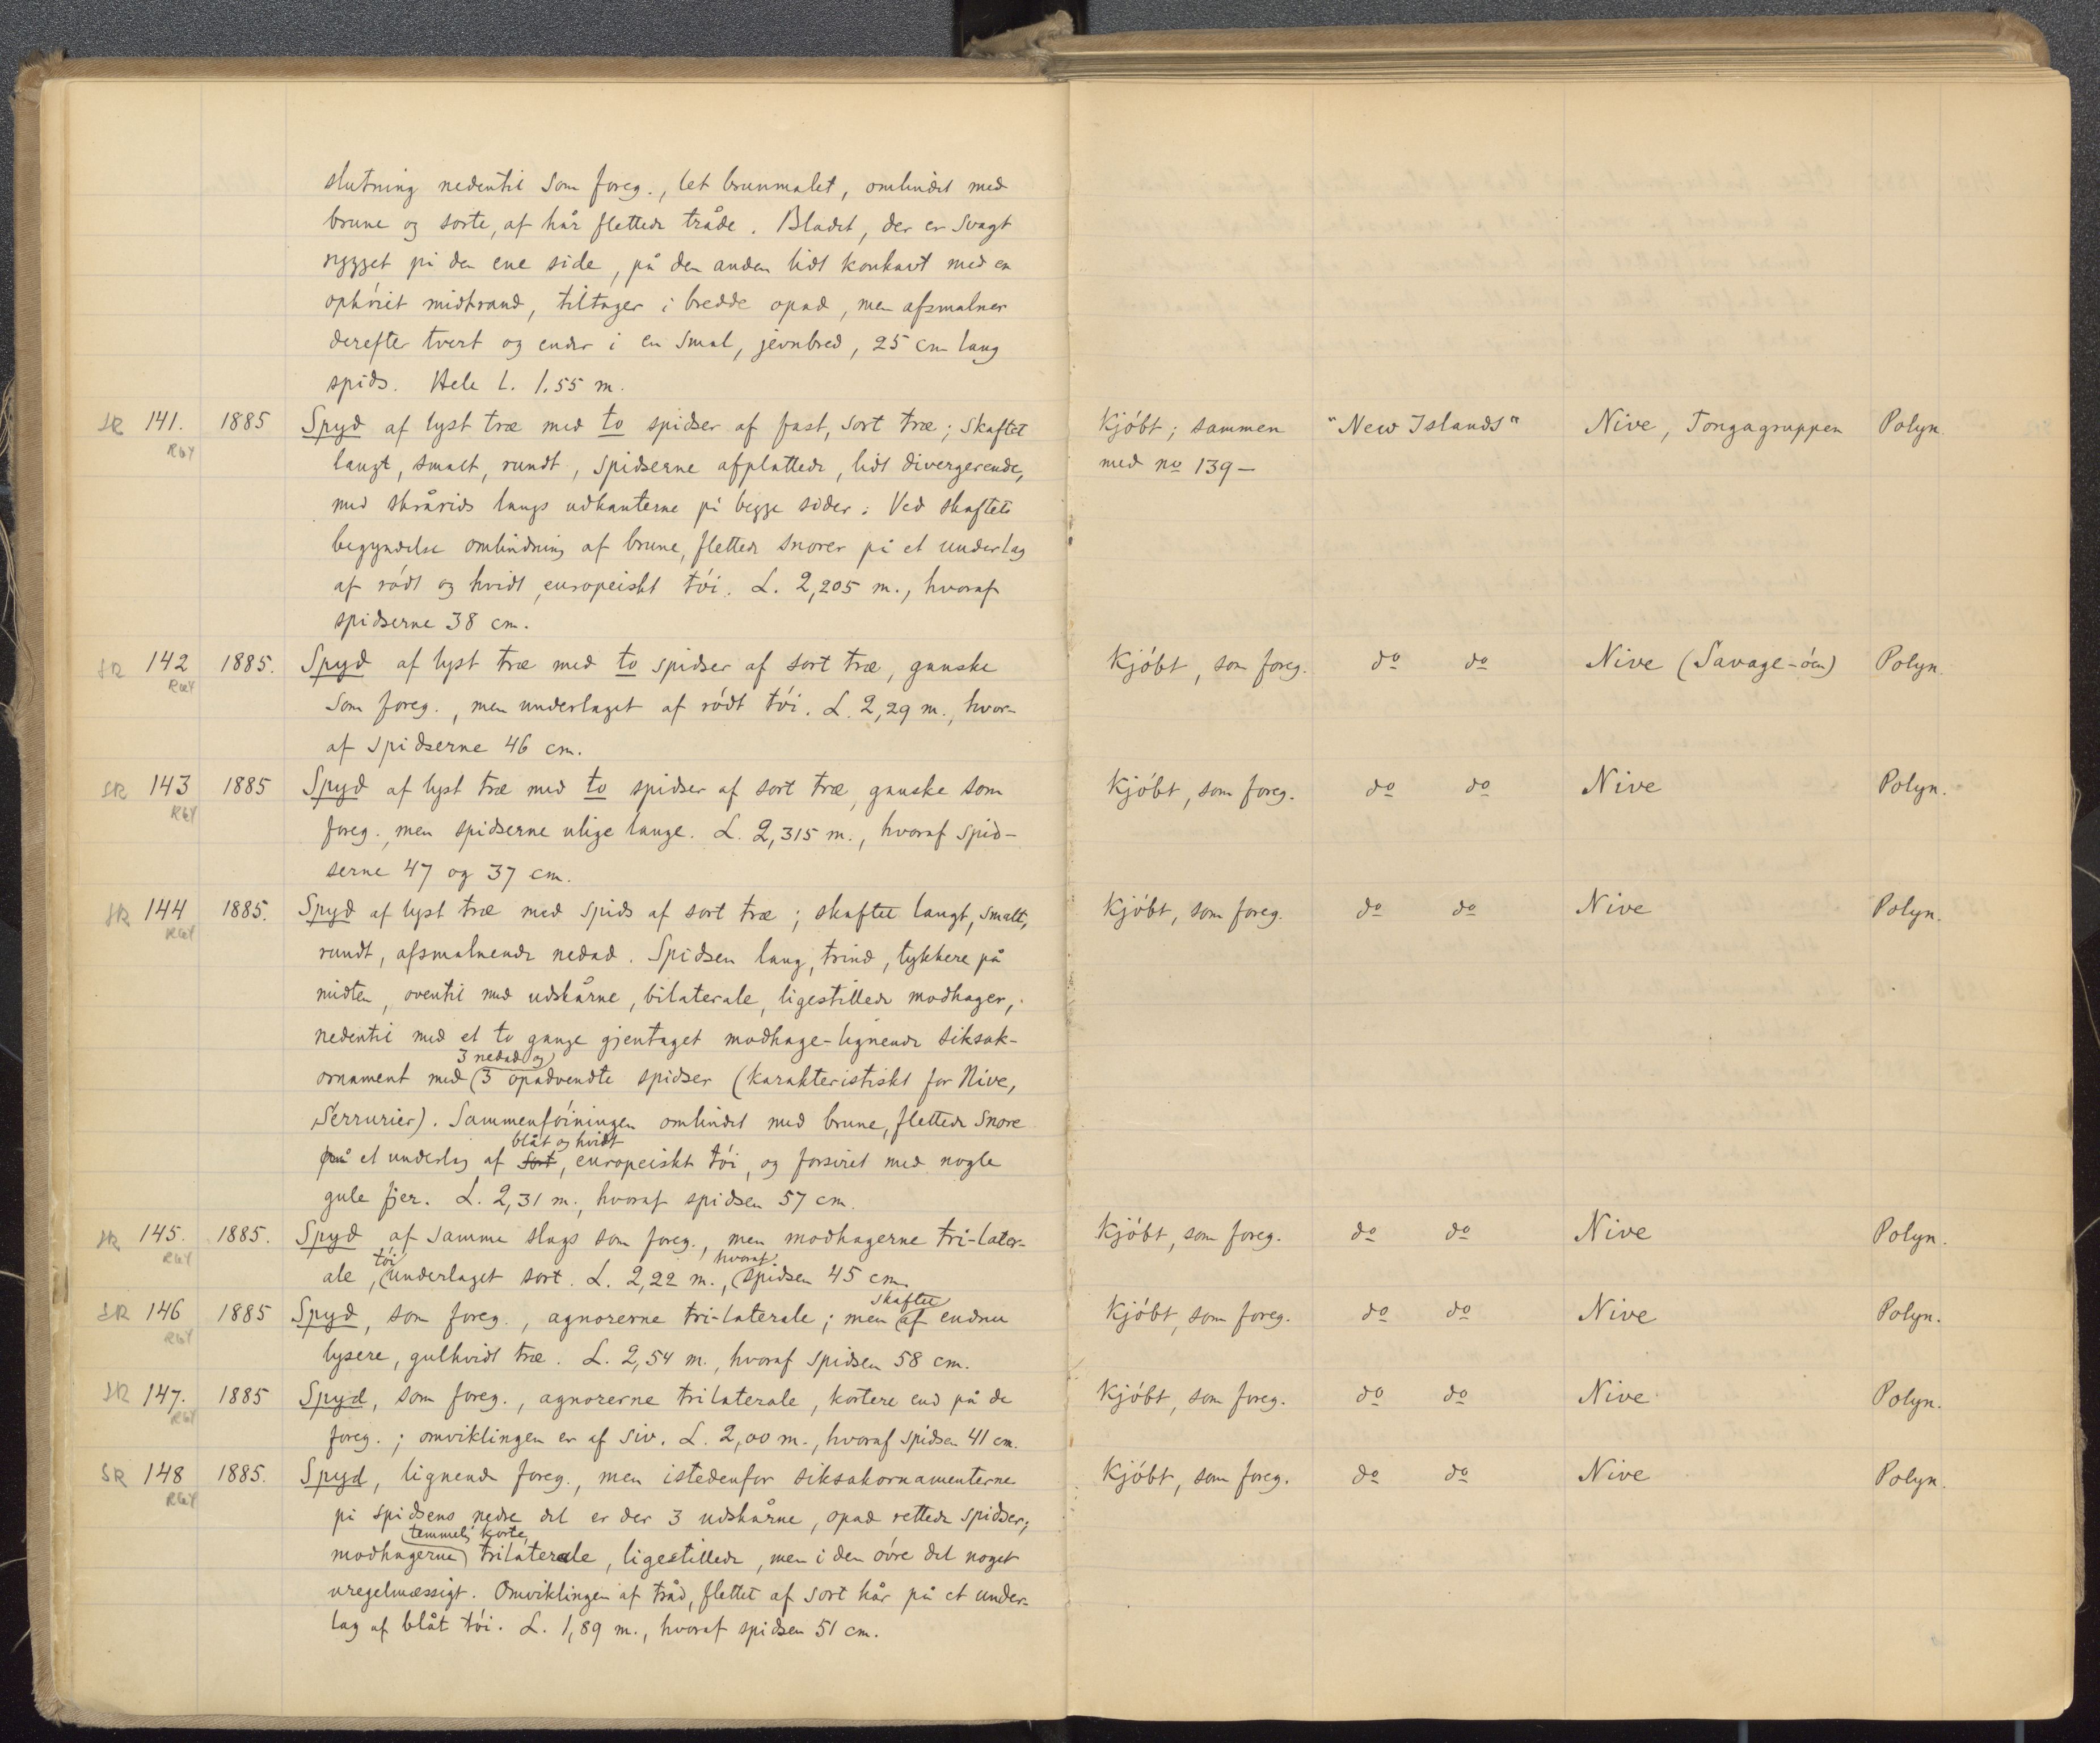 slutning nedentil som foreg., let brunmalet, omlindet med
brune og sorte, af hår flettede tråde. Bladet, der er svagt
rygget på den ene side, på den anden lidt konkavt med en
ophöiet midtrand, tiltager i bredde opad, men afsmalner
derefter tvert og ender i en smal, jevnbred, 25 cm lang
spids. Hele L. 1.55 m.
SR 141. 1885 Spyd af lyst træ med to spidser af fast, sort træ; skaftet Kjöbt; sammen "New Islands" Nive, Tongagruppen Polyn.
R6Y langt, smalt, rundt, spidserne afplattede, lidt divergerende, med no 139 —
med skrårids langs udkanterne på begge sider. Ved skaftets
begyndelse omlindning af brune, flettede snorer på et underlag
af rödt og hvidt, europeiskt töi. L. 2,205 m., hvoraf
spidserne 38 cm.
SR 142 1885. Spyd af lyst træ med to spidser af sort træ, ganske Kjöbt, som foreg. do do Nive (Savage-öen) Polyn.
R6Y som foreg., men underlaget af rödt töi. L. 2,29 m., hvor-
af spidserne 46 cm.
SR 143 1885 Spyd af lyst træ med to spidser af sort træ, ganske som Kjöbt, som foreg. do do Nive Polyn.
R6Y foreg., men spidserne ulige lange. L. 2,315 m., hvoraf spid-
serne 47 og 37 cm.
SR 144 1885. Spyd af lyst træ med spids af sort træ; skaftet langt, smalt, Kjöbt, som foreg. do do Nive Polyn.
R6Y rundt, afsmalnende nedad. Spidsen lang, trind, tykkere på
midten, oventil med udskårne, bilaterale, ligestillede modhager,
nedentil med et to gange gjentaget modhage-lignende siksak-
3 nedad og
ornament med 3 opadvendte spidser (karakteristiskt for Nive,
Serrurier). Sammenföiningen omlindet med brune, flettede snore
blåt og hvidt
på et underlag af sort, europeiskt töi, og forsiret med nogle
gule fjer. L. 2,31 m., hvoraf spidsen 57 cm.
SR 145. 1885. Spyd af samme slags som foreg., men modhagerne tri-later- Kjöbt, som foreg. do do Nive Polyn.
töi hvoraf
R6Y ale, underlaget sort. L. 2,22 m., spidsen 45 cm.
skaftet
SR 146 1885 Spyd, som foreg., agnorerne tri-laterale; men af endnu Kjöbt, som foreg. do do Nive Polyn.
R6Y lysere, gulhvidt træ. L. 2,54 m., hvoraf spidsen 58 cm.
SR 147. 1885 Spyd, som foreg., agnorerne trilaterale, kortere end på de Kjöbt, som foreg. do do Nive Polyn.
R6Y foreg.; omviklingen er af siv. L. 2,00 m., hvoraf spidsen 41 cm.
SR 148 1885. Spyd, lignende foreg., men istedenfor siksakornamenterne Kjöbt, som foreg. do do Nive Polyn.
R6Y på spidsens nedre del er der 3 udskårne, opad rettede spidser;
temmel. korte,
modhagerne trilaterale, ligestillede, men i den övre del noget
uregelmæssigt. Omviklingen af tråd, flettet af sort hår på et under-
lag af blåt töi. L. 1,89 m., hvoraf spidsen 51 cm.